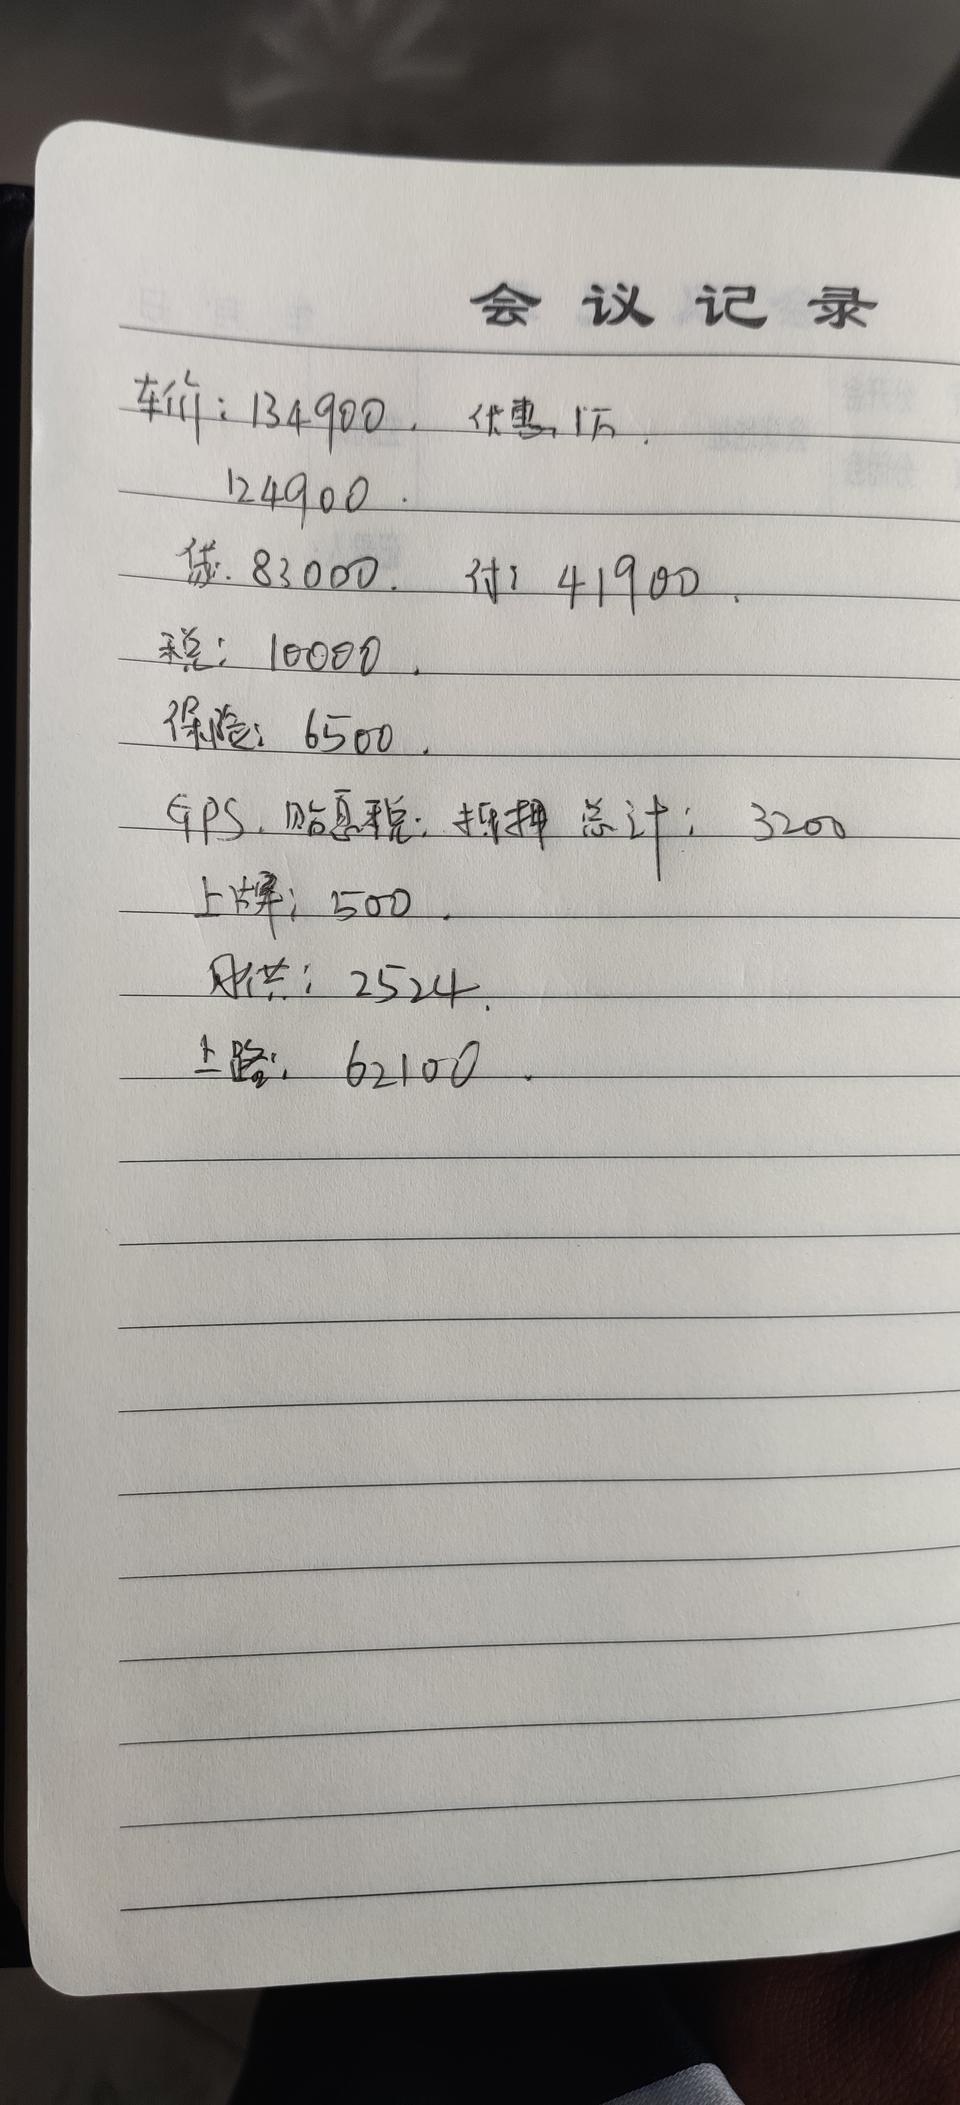 会议记录
车价：134900. 优惠1万.
124900.
贷. 83000. 付：41900.
税：10000.
保险：6500.
GPS. 贴息税. 抵押 总计：3200
上牌：500.
月供：2524.
上路：62100.